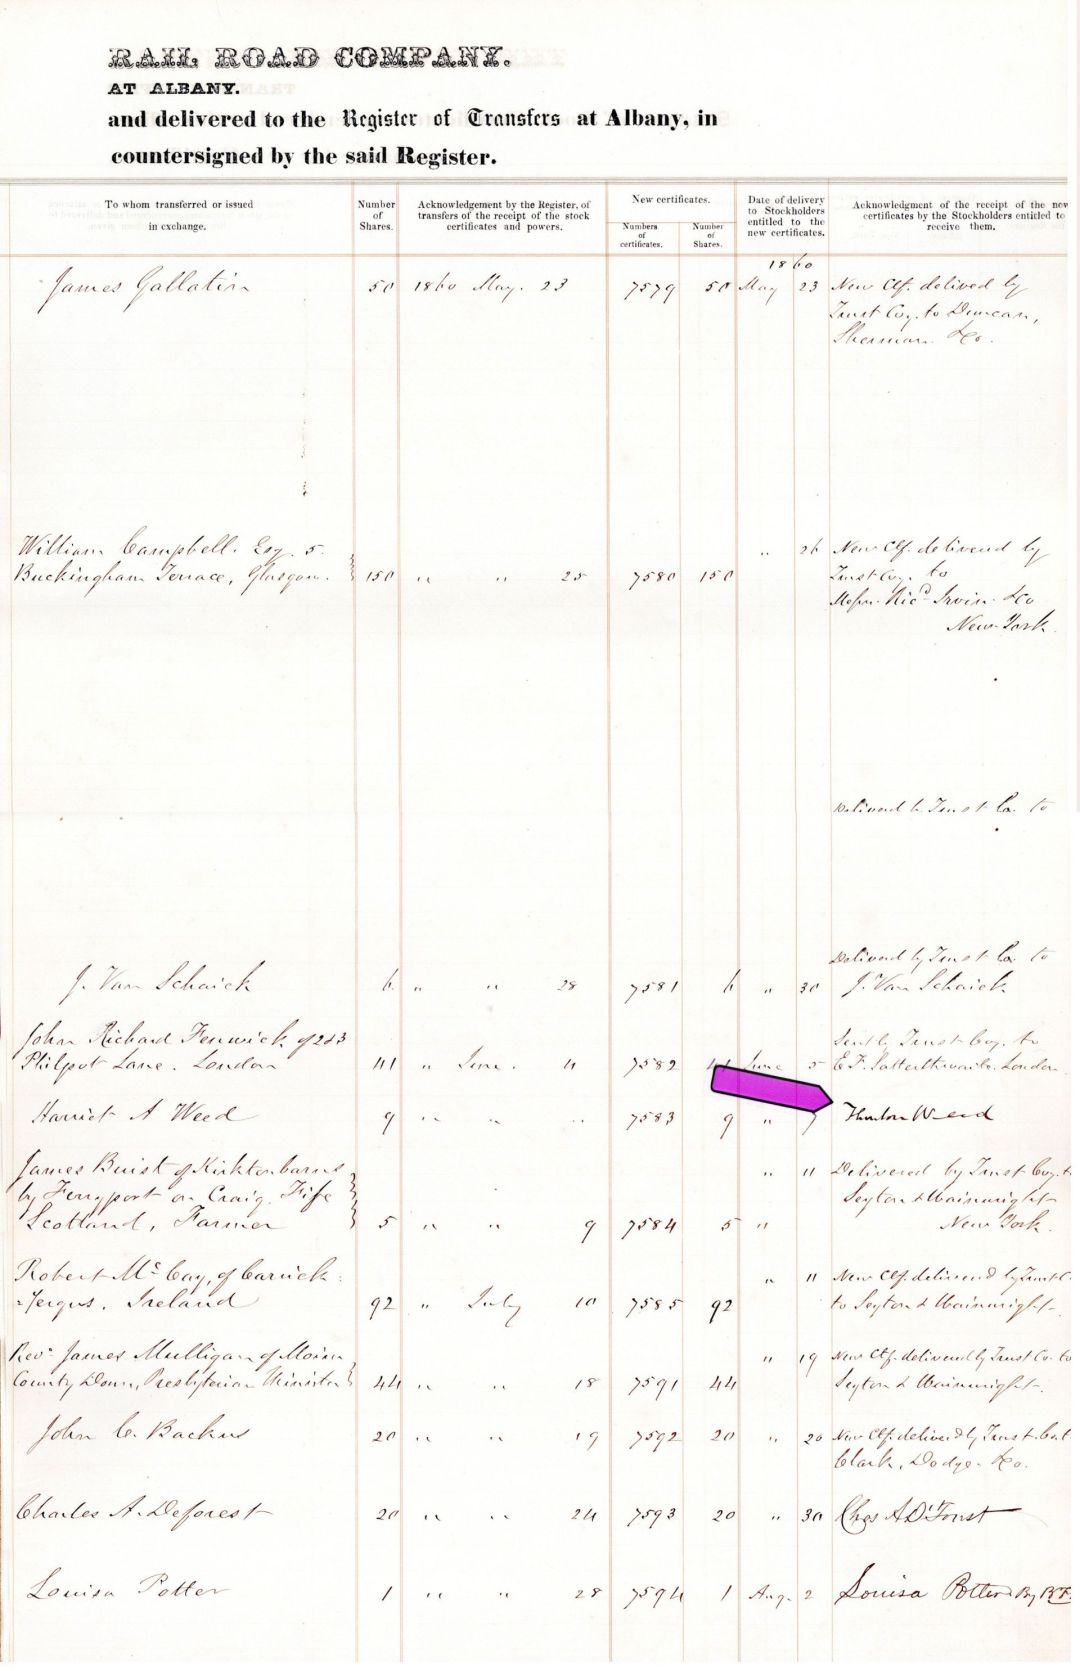 RAIL ROAD COMPANY.
AT ALBANY.
and delivered to the Register of Transfers at Albany, in
countersigned by the said Register.
To whom transferred or issued in exchange.
Number of Shares.
Acknowledgement by the Register, of transfers of the receipt of the stock certificates and powers.
New certificates.
Numbers of certificates.
Number of Shares.
Date of delivery to Stockholders entitled to the new certificates.
Acknowledgment of the receipt of the new certificates by the Stockholders entitled to receive them.
1860
James Gallatin 50 1860 May. 23 7579 50 May 23 New Ctf. delived by
Trust Coy. to Duncan,
Sherman &Co.
William Campbell. Esq. 5. " 26 New Ctf. delivered by
Buckingham Terrace, Glasgow. 150 " " 25 7580 150 Trust Coy. to
Messrs. Ricd Irvin &Co
New York.
Delivered by Trust Co. to
Delivered by Trust Co. to
J. Van Schaick 6 " " 28 7581 6 " 30 J. Van Schaick
John Richard Fenwick of 2&3 Sent by Trust Coy. to
Philpot Lane. London 41 " June. 4 7582 41 June 5 E F. Satterthwaite. London
Harriet A Weed 9 " " " 7583 9 " 7 Thurlow Weed
James Buist of Kirktonbarns " 11 Delivered by Trust Coy. t
by Ferryport on Craig. Fife Seyton & Wainwright
Scotland, Farmer 5 " " 9 7584 5 " New York.
Robert McCay, of Carrick- " 11 New Ctf. delivered by Trust C
-fergus. Ireland 92 " July 10 7585 92 to Seyton & Wainwright
Revd James Mulligan of Moira " 19 New Ctf. delivered by Trust Co. to
County Down, Presbyterian Minister 44 " " 18 7591 44 Seyton & Wainwright.
John C. Backus 20 " " 19 7592 20 " 20 New Ctf. delivered by Trust Co. t
Clark, Dodge. &Co.
Charles A. Deforest 20 " " 24 7593 20 " 30 Chas A D'Forest
Louisa Potter 1 " " 28 7594 1 Aug. 2 Louisa Potter By